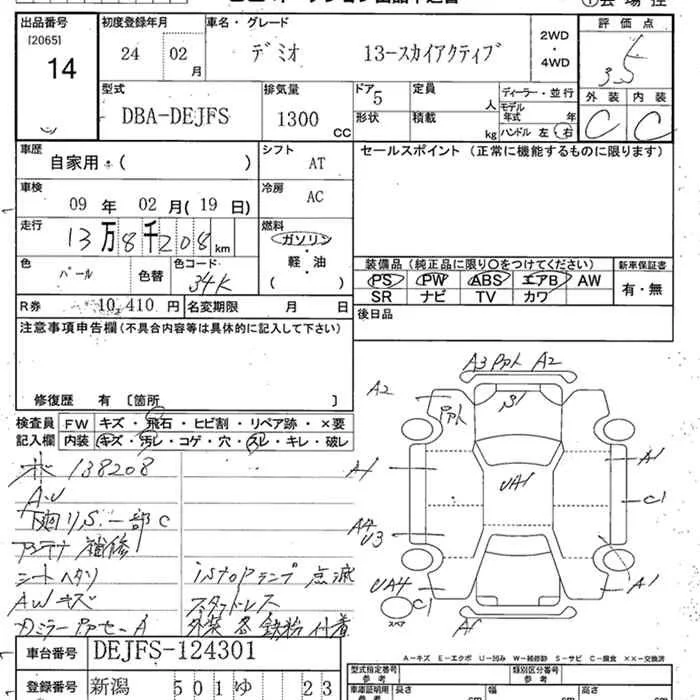 出品番号 初度登録年月 車名・グレード 2WD・4WD 評価点
[2065]
14 24 02月 デミオ 13-スカイアクティブ 3.5
型式 排気量 ドア 定員 ディーラー・並行 外装 内装
DBA-DEJFS 1300CC 5 人 モデル年式 年 C C
形状 積載 kg ハンドル 左・右
車歴 シフト セールスポイント (正常に機能するものに限ります)
自家用・( ) AT
車検 冷房
09年 02月(19日) AC
走行 燃料
13万8千208km ガソリン・軽・油
色 色替 色コード ( )
パール 34K
装備品 (純正品に限り○をつけてください) 新車保証書
PS PW ABS エアB AW 有・無
SR ナビ TV カワ
R券 10,410円 名変期限 月 日
後日品
注意事項申告欄(不具合内容等は具体的に記入して下さい)
修復歴 有 〔箇所 〕
検査員記入欄 FW キズ・飛石・ヒビ割・リペア跡・×要
内装 キズ・汚レ・コゲ・穴・スレ・キレ・破レ
138208
下廻りS.一部C
アンテナ補修
シートヘタリ istopランプ点滅
AWキズ スタッドレス
外装各鉄粉付着
A3 A2
A2
A1
UA1
A1
C1
A4
U3
UA4
C1
A1
スペア
A1
車台番号 DEJFS-124301
登録番号 新潟 501 ゆ 23
A-キズ E-エクボ U-凹み W-補修跡 S-サビ C-腐食 ××-交換済
型式指定番号 参考 類別区分番号 参考
車庫証明用 参考 長さ cm 幅 cm 高さ cm